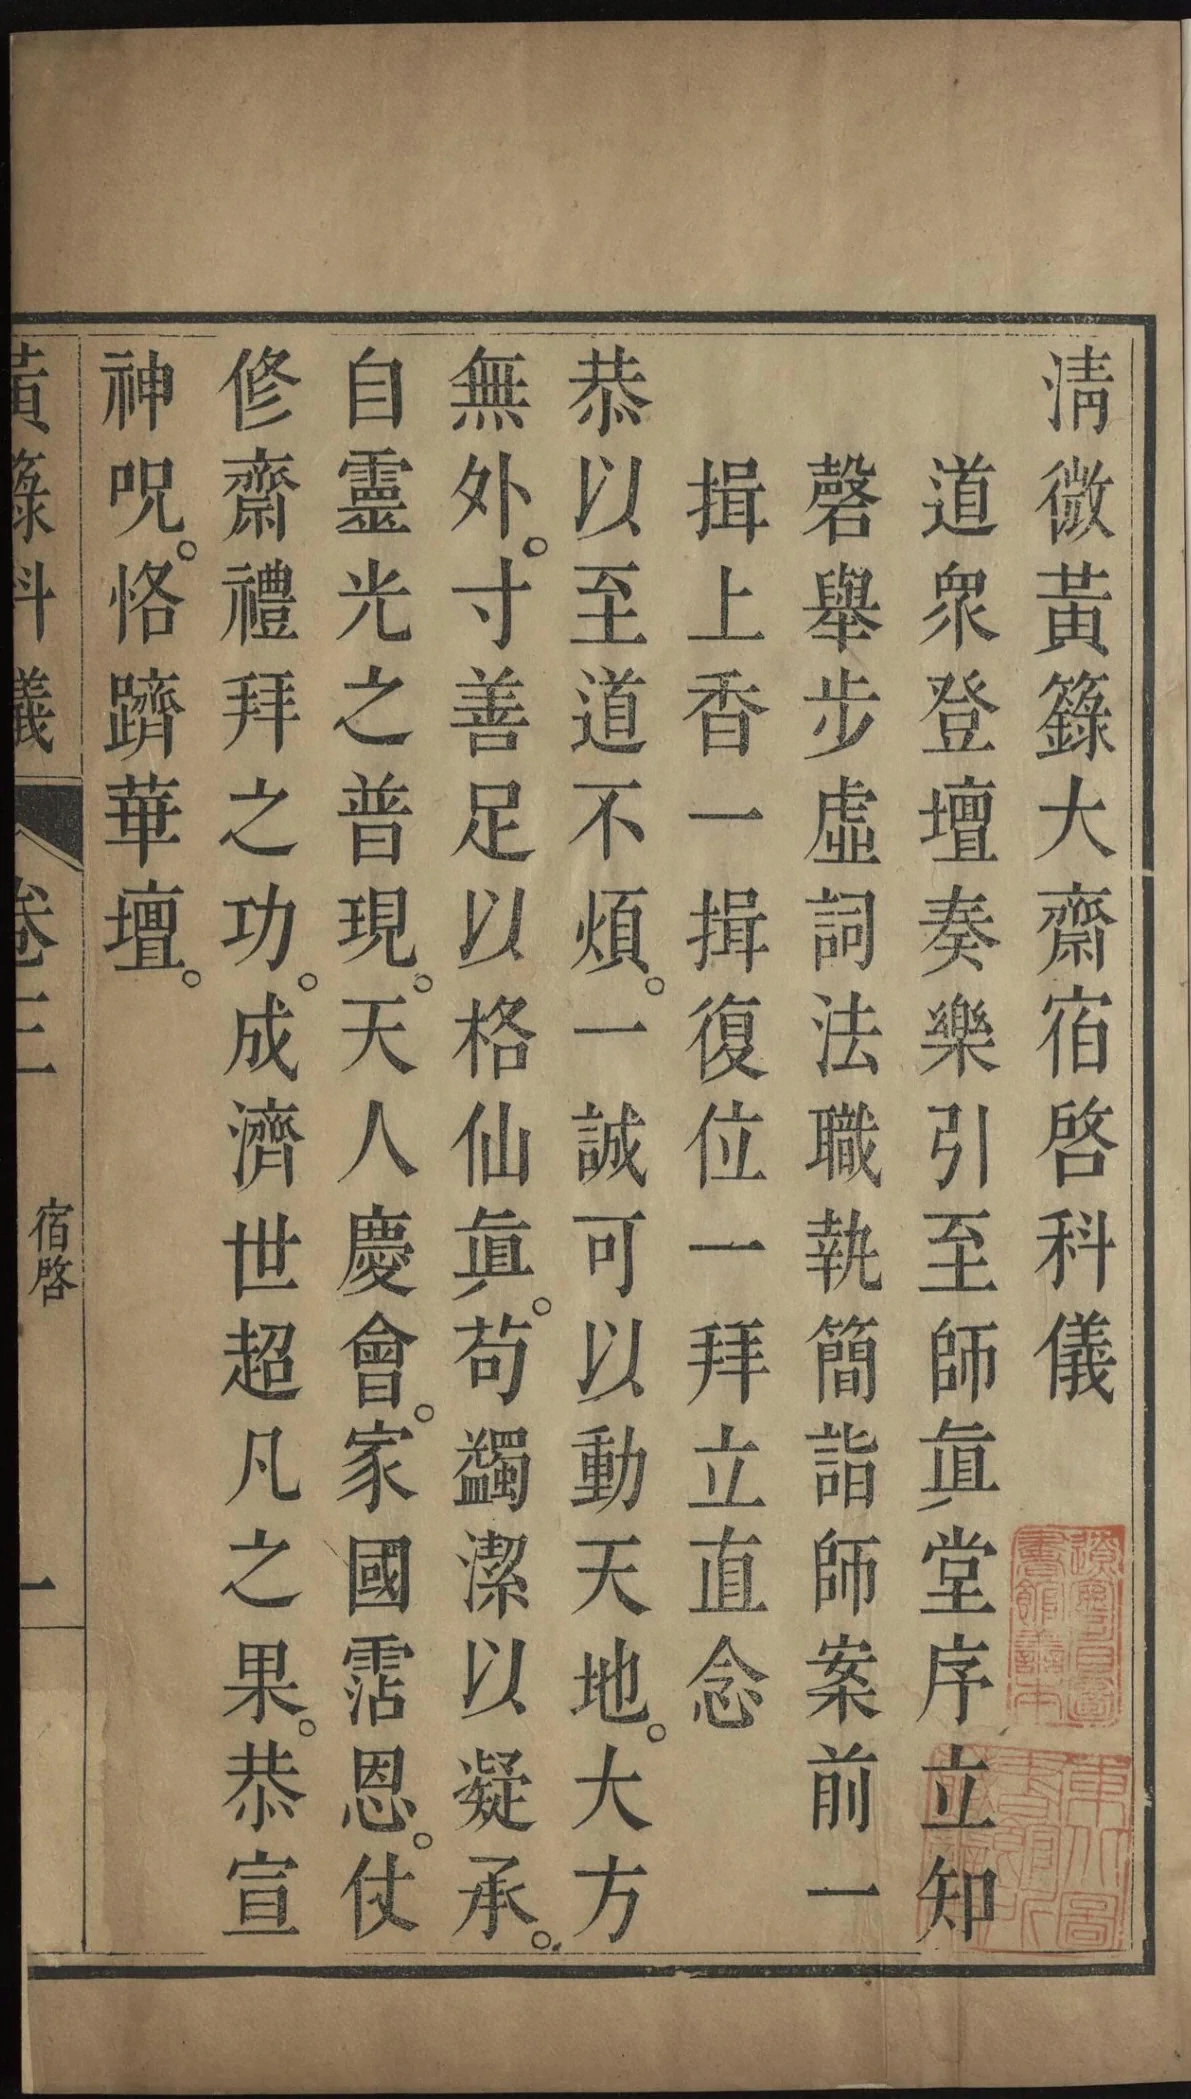 淸微黃籙大齋宿啓科儀
道眾登壇奏樂引至師眞堂序立知
磬舉步虛詞法職執簡詣師案前一
揖上香一揖復位一拜立直念
恭以至道不煩。一誠可以動天地。大方
無外。寸善足以格仙眞。茍蠲潔以凝承。
自靈光之普現。天人慶會。家國霑恩。仗
修齋禮拜之功。成濟世超凡之果。恭宣
神呪。恪躋華壇。
黃籙科儀 卷三 宿啓 一